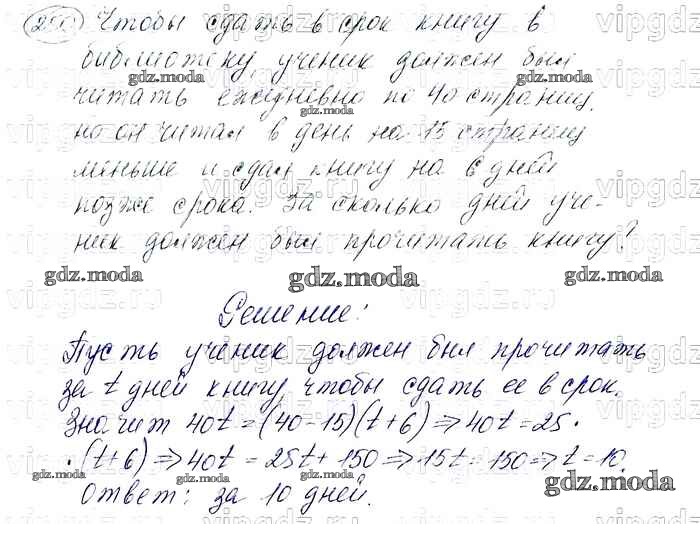 Чтобы сдать в срок книгу в
библиотеку ученик должен был
читать ежедневно по 40 страниц,
но он читал в день на 15 страниц
меньше и сдал книгу на 6 дней
позже срока. За сколько дней уче-
ник должен был прочитать книгу?
Решение:
Пусть ученик должен был прочитать
за t дней книгу, чтобы сдать ее в срок.
Значит 40t = (40-15)(t+6) ⇒ 40t = 25 ·
· (t+6) ⇒ 40t = 25t + 150 ⇒ 15t = 150 ⇒ t = 10.
Ответ: за 10 дней.
gdz.moda
gdz.moda
gdz.moda
gdz.moda
gdz.moda
gdz.moda
gdz.moda
gdz.moda
gdz.moda
vipgdz